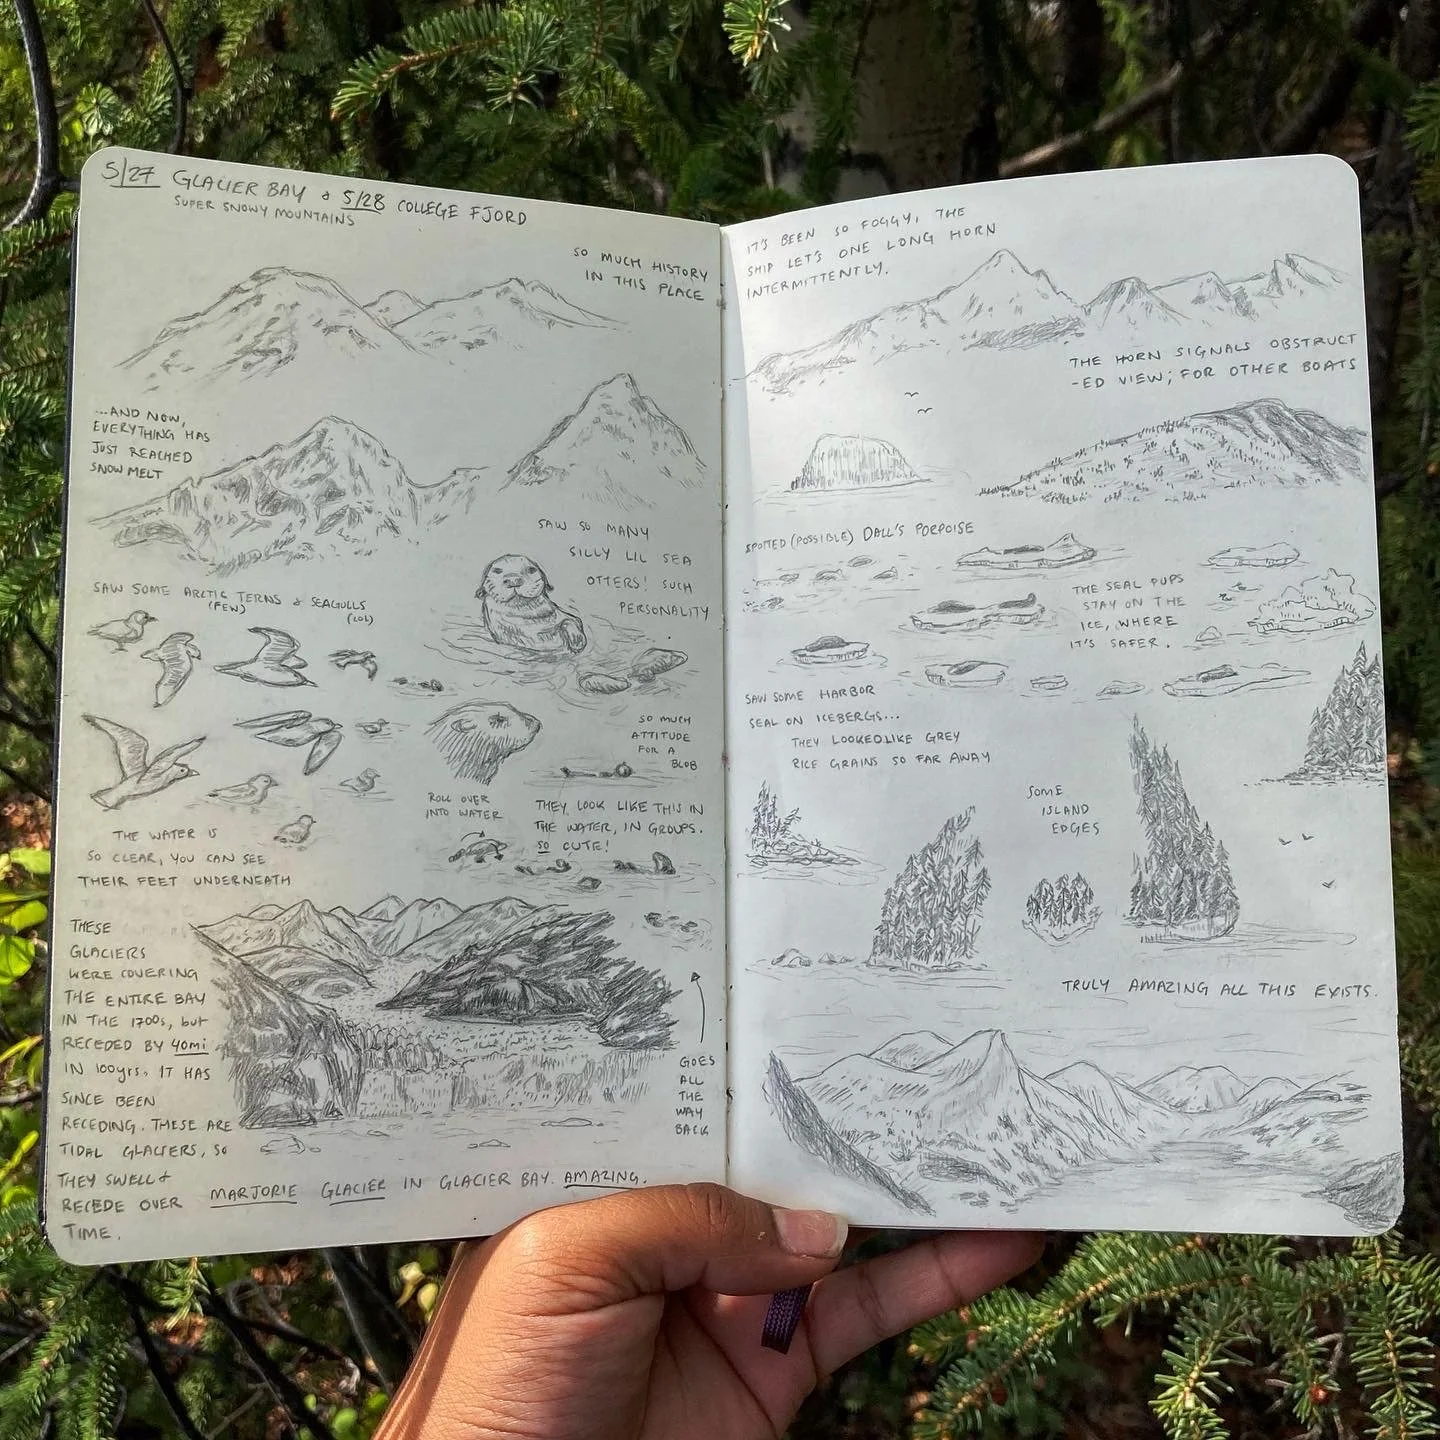 5/27 GLACIER BAY & 5/28 COLLEGE FJORD
SUPER SNOWY MOUNTAINS
SO MUCH HISTORY
IN THIS PLACE
...AND NOW,
EVERYTHING HAS
JUST REACHED
SNOW MELT
SAW SO MANY
SILLY LIL SEA
OTTERS! SUCH
PERSONALITY
SAW SOME ARCTIC TERNS & SEAGULLS
(FEW)
(LOL)
SO MUCH
ATTITUDE
FOR A
BLOB
ROLL OVER
INTO WATER
THEY LOOK LIKE THIS IN
THE WATER, IN GROUPS.
SO CUTE!
THE WATER IS
SO CLEAR, YOU CAN SEE
THEIR FEET UNDERNEATH
THESE
GLACIERS
WERE COVERING
THE ENTIRE BAY
IN THE 1700s, but
RECEDED BY 40mi
IN 100yrs. IT HAS
SINCE BEEN
RECEDING. THESE ARE
TIDAL GLACIERS, SO
THEY SWELL &
RECEDE OVER
TIME.
GOES
ALL
THE
WAY
BACK
MARJORIE GLACIER IN GLACIER BAY. AMAZING.
IT'S BEEN SO FOGGY, THE
SHIP LET'S ONE LONG HORN
INTERMITTENTLY.
THE HORN SIGNALS OBSTRUCT
-ED VIEW; FOR OTHER BOATS
SPOTTED (POSSIBLE) DALL'S PORPOISE
THE SEAL PUPS
STAY ON THE
ICE, WHERE
IT'S SAFER.
SAW SOME HARBOR
SEAL ON ICEBERGS...
THEY LOOKED LIKE GREY
RICE GRAINS SO FAR AWAY
SOME
ISLAND
EDGES
TRULY AMAZING ALL THIS EXISTS.